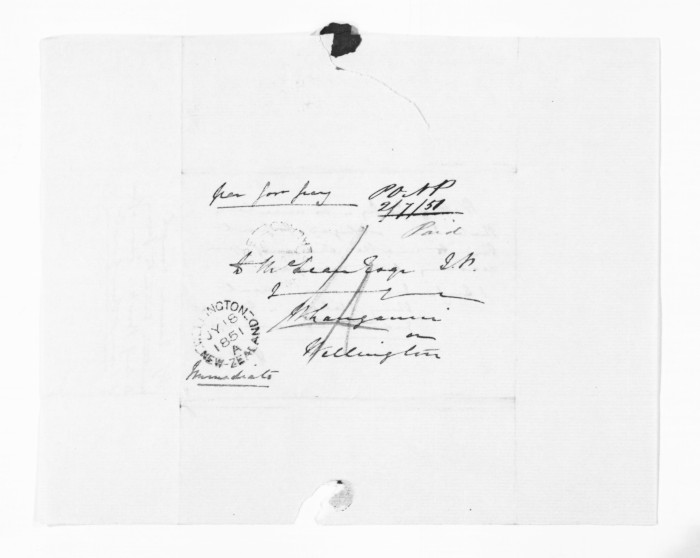 per Gov
P.O. N P
2/7/51
Paid
D McLean Esqe J.P.
Whanganui
or
Wellington
WELLINGTON
JY 18
1851
A
NEW-ZEALAND
Immediate